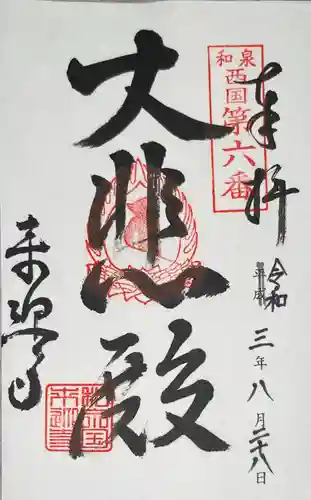 奉拝
和泉
西国第六番
平成
令和
三年八月二十八日
大悲殿
来迎寺